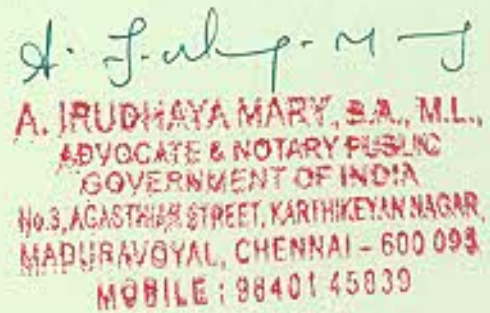 A. IRUDHAYA MARY, B.A., M.L.,
ADVOCATE & NOTARY PUBLIC
GOVERNMENT OF INDIA
No.3, AGASTHIAR STREET, KARTHIKEYAN NAGAR,
MADURAVOYAL, CHENNAI - 600 095
MOBILE : 98401 45839